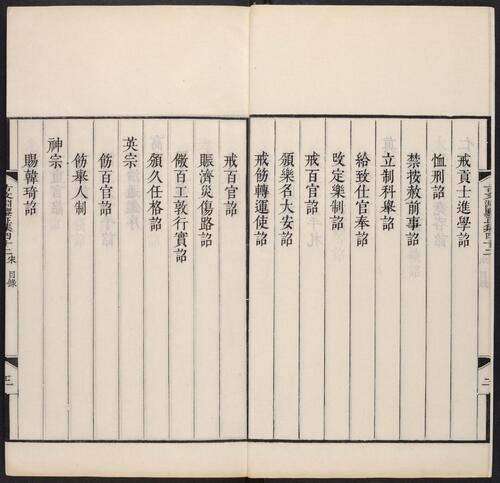 戒貢士進學詔
恤刑詔
禁按赦前事詔
立制科舉詔
給致仕官奉詔
改定樂制詔
戒百官詔
頒樂名大安詔
戒飭轉運使詔
戒百官詔
賑濟災傷路詔
儆百工敦行實詔
頒久任格詔
英宗
飭百官詔
飭舉人制
神宗
賜韓琦詔
目錄
二
宋 目錄
三